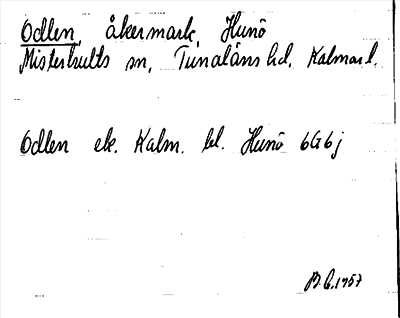 Odlen, åkermark, Hunö
Misterhults sn, Tunaläns hd, Kalmar l.
Odlen ek. Kalm. bl. Hunö 6G6j
1957